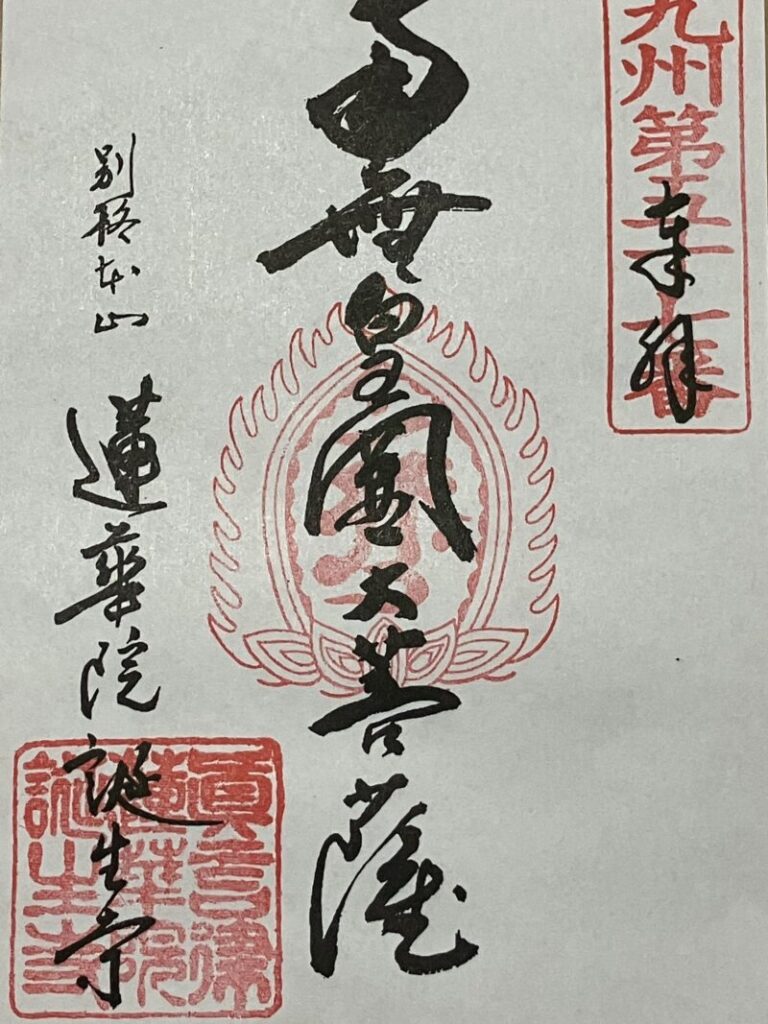 九州第五十番
奉拝
南無皇圓大菩薩
別格本山 蓮華院誕生寺
眞言律
蓮華院
誕生寺